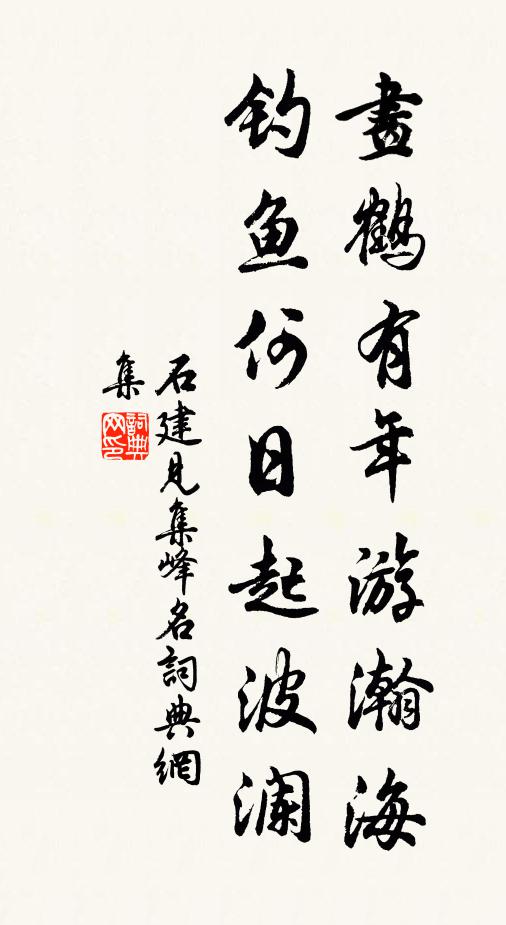 畫鶴有年游瀚海
钓鱼何日起波澜
石建見集峰名詞典網
集
詞典網印